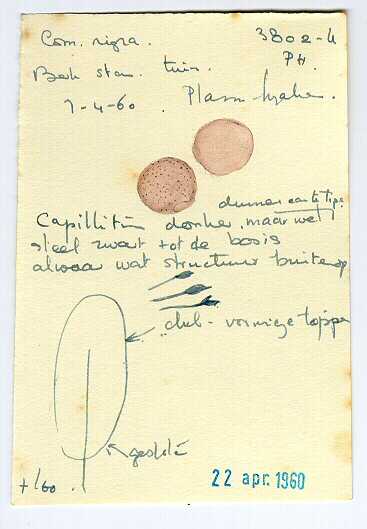 Com. nigra. 3802-4
Beek stam. tuin. PH.
7-4-60. Plasm. hyalien.
dunner aan de tips.
Capillitiu donker, maar wel
steel zwart tot de basis
alwaar wat structuur buitenop
club-vormige toppen
22 apr. 1960